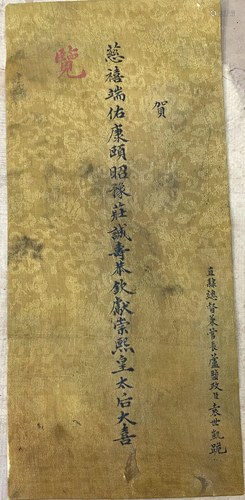 贺
慈禧端佑康頤昭豫莊誠壽恭欽獻崇熙皇太后大喜
直隸總督兼管長蘆鹽政臣袁世凱跪
覽